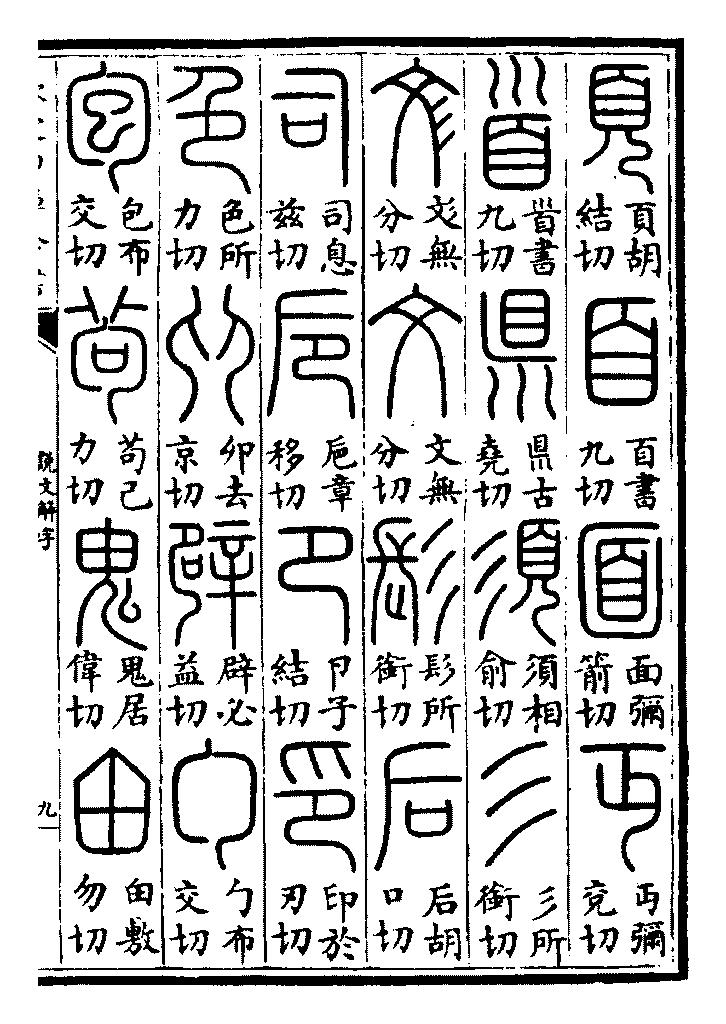 頁胡結切
𦣻書九切
面彌箭切
丏彌兗切
𩠐書九切
県古堯切
須相俞切
彡所銜切
彣無分切
文無分切
髟所銜切
后胡口切
司息兹切
巵章移切
卪子結切
印於刃切
色所力切
卯去京切
辟必益切
勹布交切
包布交切
茍己力切
鬼居偉切
甶敷勿切
說文解字
九